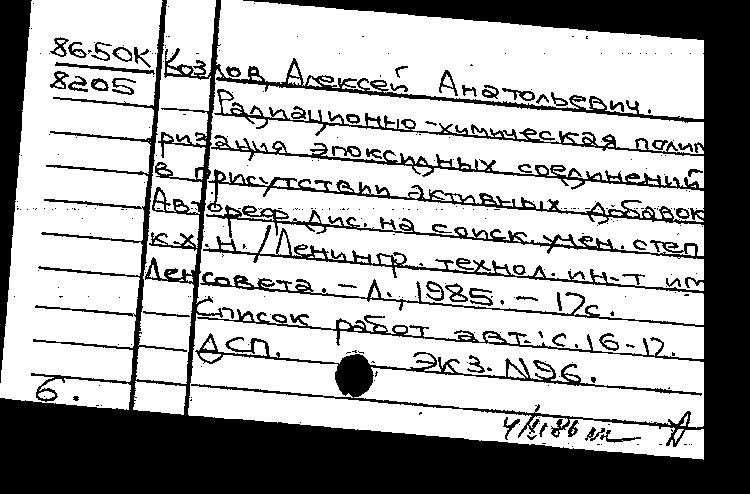 86-50К Козлов, Алексей Анатольевич.
8205 Радиационно-химическая полим
ризация эпоксидных соединений
в присутствии активных добавок
Автореф. дис. на соиск. учен. степ
к.х.н. / Ленингр. технол. ин-т им
Ленсовета. - Л., 1985. - 17с.
Список работ авт.: с. 16-17.
ДСП. Экз. N96.
6.